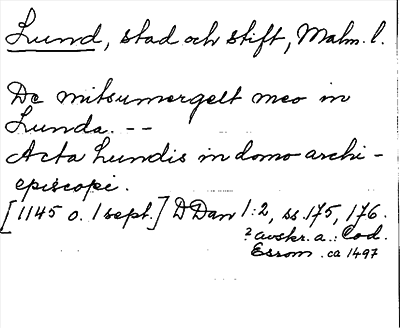 Lund, stad och stift, Malm. l.
De mitsumergelt meo in
Lunda. --
Acta Lundis in domo archi-
episcopi.
[1145 o. 1 sept.] DDan 1:2, ss. 175, 176.
2 avskr. a.: Cod.
Esrom. ca 1497